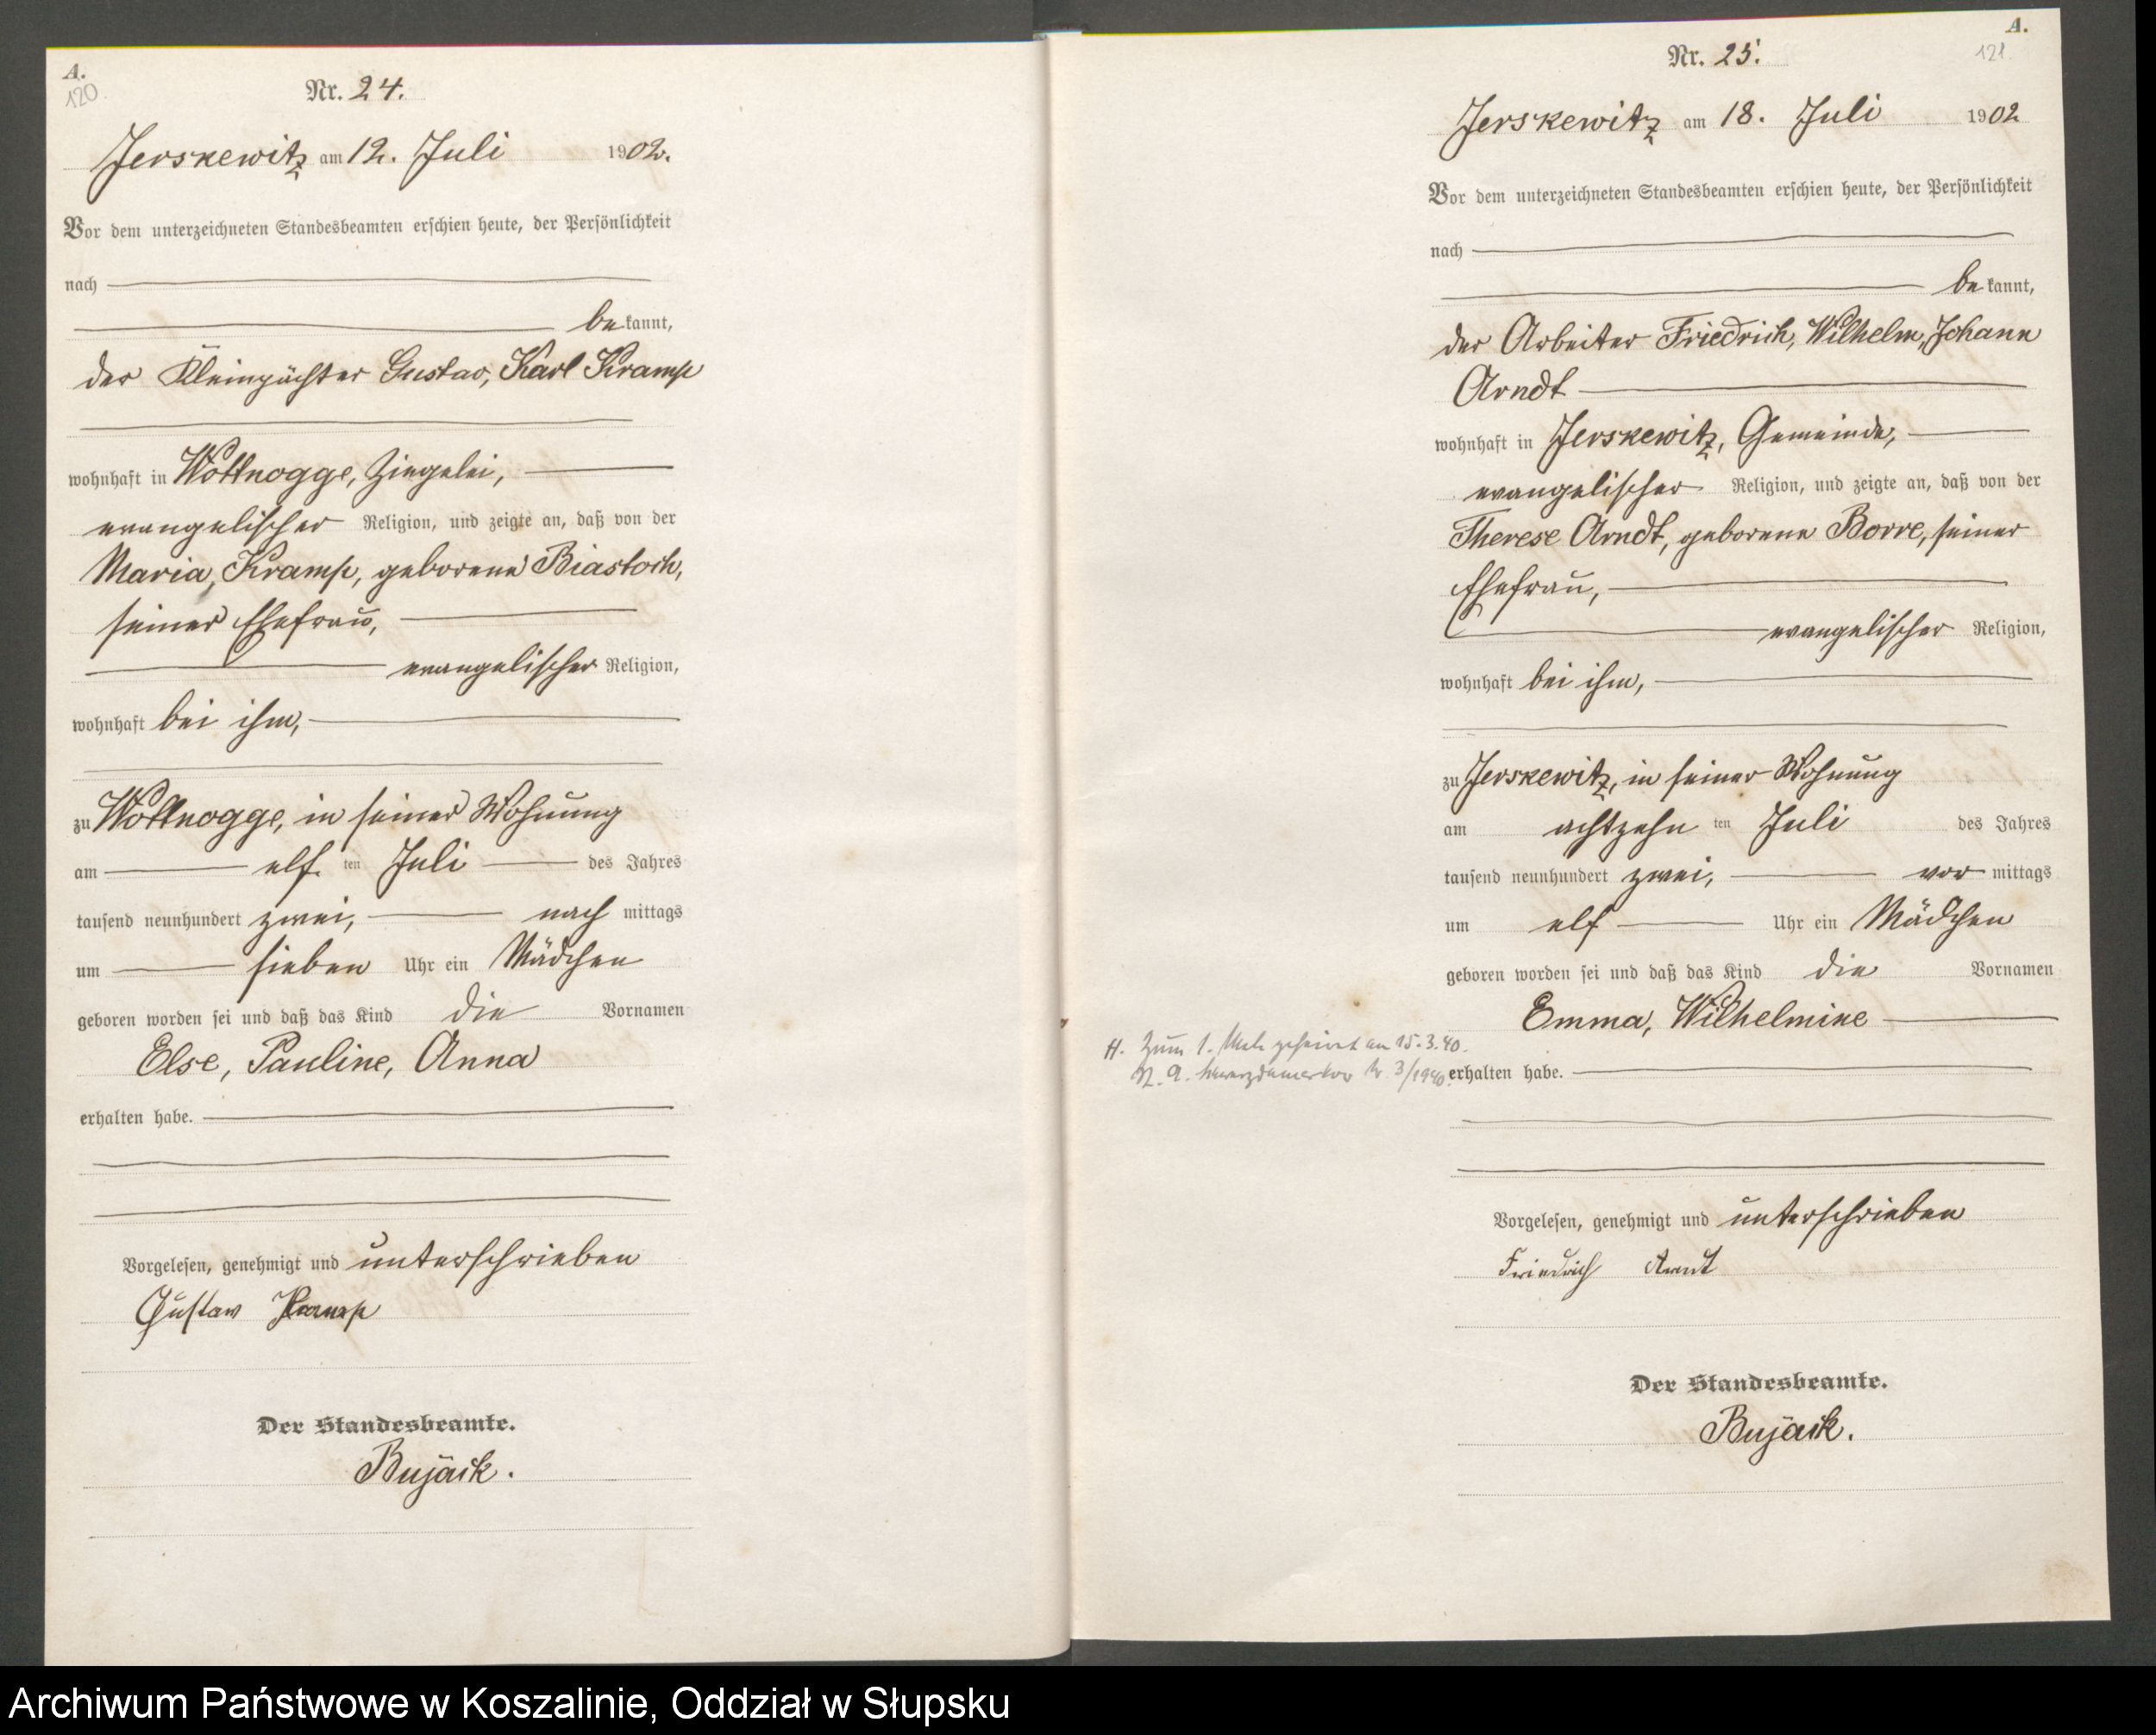 A.
120
Nr. 24.
Jerskewitz am 12. Juli 1902.
Vor dem unterzeichneten Standesbeamten erschien heute, der Persönlichkeit
nach
be kannt,
der Kleinpächter Gustav, Karl Kramp
wohnhaft in Wottnogge, Ziegelei,
evangelischer Religion, und zeigte an, daß von der
Maria, Kramp, geborene Biastoch,
seiner Ehefrau,
evangelischer Religion,
wohnhaft bei ihm,
zu Wottnogge, in seiner Wohnung
am elf ten Juli des Jahres
tausend neunhundert zwei, nach mittags
um sieben Uhr ein Mädchen
geboren worden sei und daß das Kind die Vornamen
Else, Pauline, Anna
erhalten habe.
Vorgelesen, genehmigt und unterschrieben
Gustav Kramp
Der Standesbeamte.
Bujack.
A.
121
Nr. 25.
Jerskewitz am 18. Juli 1902
Vor dem unterzeichneten Standesbeamten erschien heute, der Persönlichkeit
nach
be kannt,
der Arbeiter Friedrich, Wilhelm, Johann
Arndt
wohnhaft in Jerskewitz, Gemeinde,
evangelischer Religion, und zeigte an, daß von der
Therese Arndt, geborene Borre, seiner
Ehefrau,
evangelischer Religion,
wohnhaft bei ihm,
zu Jerskewitz, in seiner Wohnung
am achtzehn ten Juli des Jahres
tausend neunhundert zwei, vor mittags
um elf Uhr ein Mädchen
geboren worden sei und daß das Kind die Vornamen
Emma, Wilhelmine
H. Zum 1. Male geheirat am 15.3.40.
3/1940.
erhalten habe.
Vorgelesen, genehmigt und unterschrieben
Friedrich Arndt
Der Standesbeamte.
Bujack.
Archiwum Państwowe w Koszalinie, Oddział w Słupsku